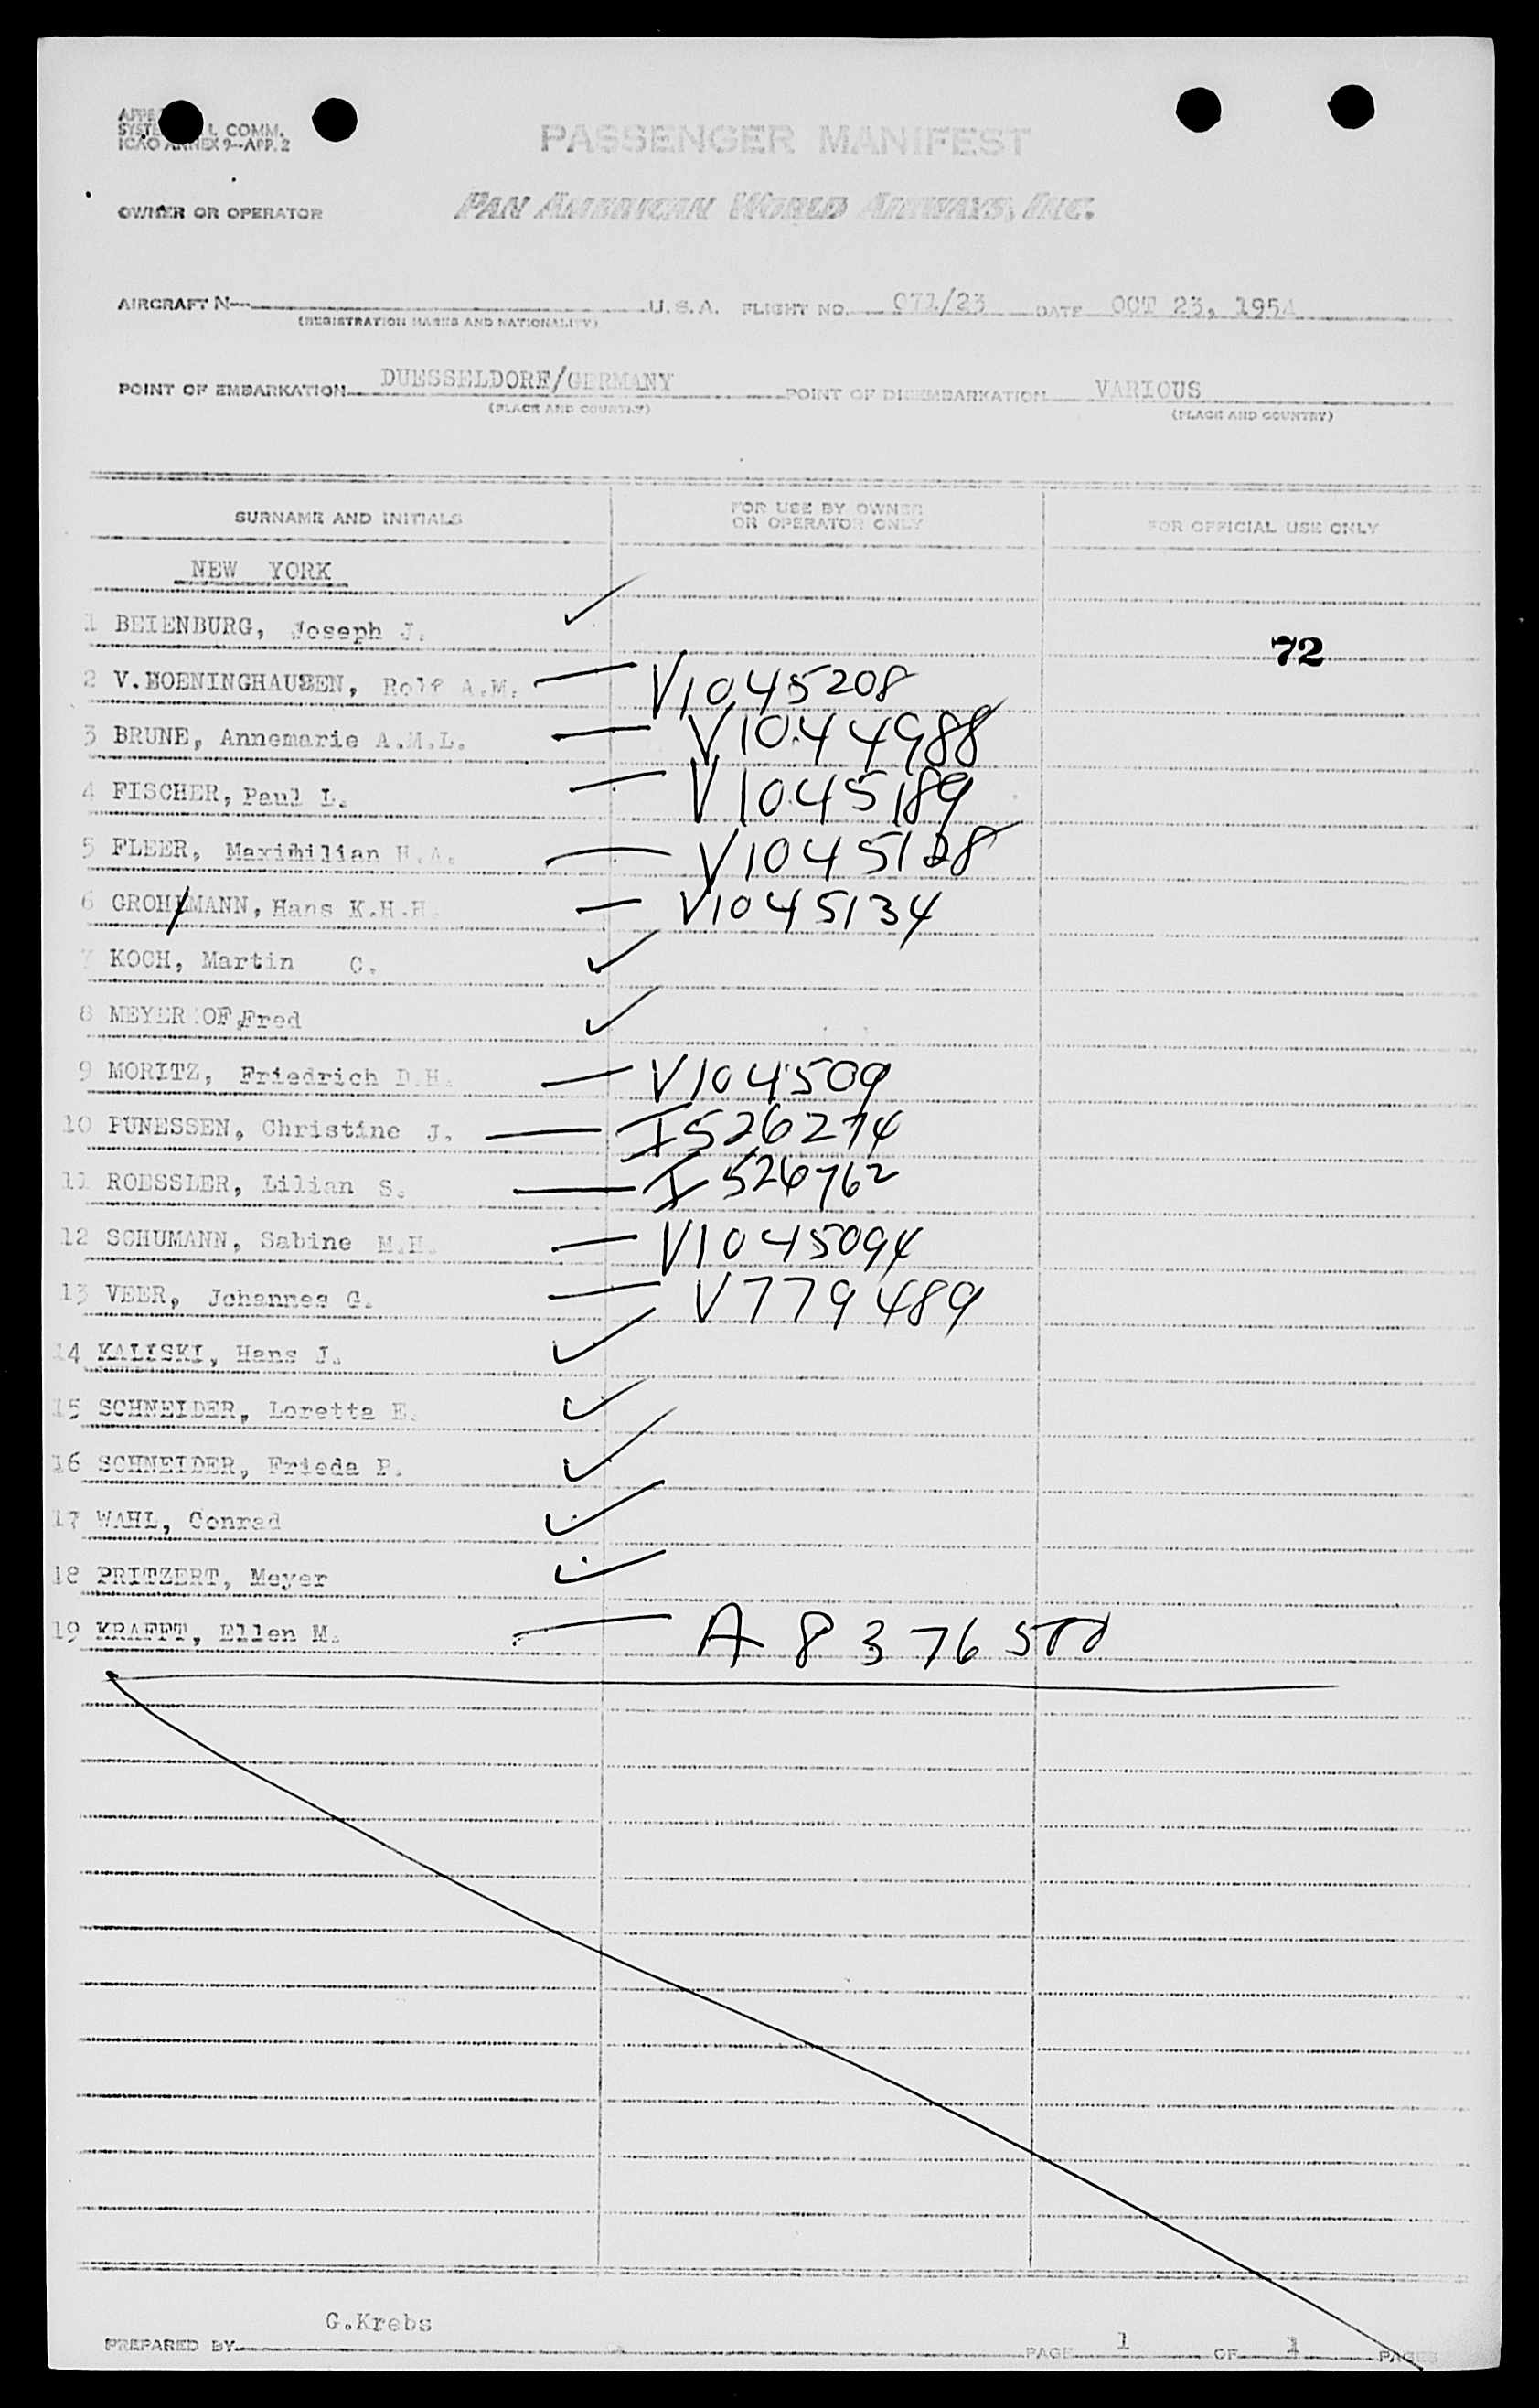 SYSTE L COMM.
ICAO ANNEX 9-APP. 2
PASSENGER MANIFEST
OWNER OR OPERATOR PAN AMERICAN WORLD AIRWAYS, INC.
AIRCRAFT N U.S.A. FLIGHT NO. 071/23 DATE OCT 23, 1954
(REGISTRATION MARKS AND NATIONALITY)
POINT OF EMBARKATION DUESSELDORF/GERMANY POINT OF DISEMBARKATION VARIOUS
(PLACE AND COUNTRY) (PLACE AND COUNTRY)
SURNAME AND INITIALS FOR USE BY OWNER OR OPERATOR ONLY FOR OFFICIAL USE ONLY
NEW YORK
1 BEIENBURG, Joseph J. ✓
72
2 V.BOENINGHAUSEN, Rolf A.M. — V1045208
3 BRUNE, Annemarie A.M.L. — V1044988
4 FISCHER, Paul L. — V1045189
5 FLEER, Maximilian H.A. — V1045128
6 GROHMANN, Hans K.H.H. — V1045134
7 KOCH, Martin C. ✓
8 MEYERHOF, Fred ✓
9 MORITZ, Friedrich D.H. — V104509
10 PUNESSEN, Christine J. — I526274
11 ROESSLER, Lilian S. — I526762
12 SCHUMANN, Sabine M.H. — V1045094
13 VEER, Johannes G. — V779489
14 KALISKI, Hans J. ✓
15 SCHNEIDER, Loretta E. ✓
16 SCHNEIDER, Frieda P. ✓
17 WAHL, Conrad ✓
18 PRITZERT, Meyer ✓
19 KRAFFT, Ellen M. — A8376500
G.Krebs
PREPARED BY PAGE 1 OF 1 PAGES